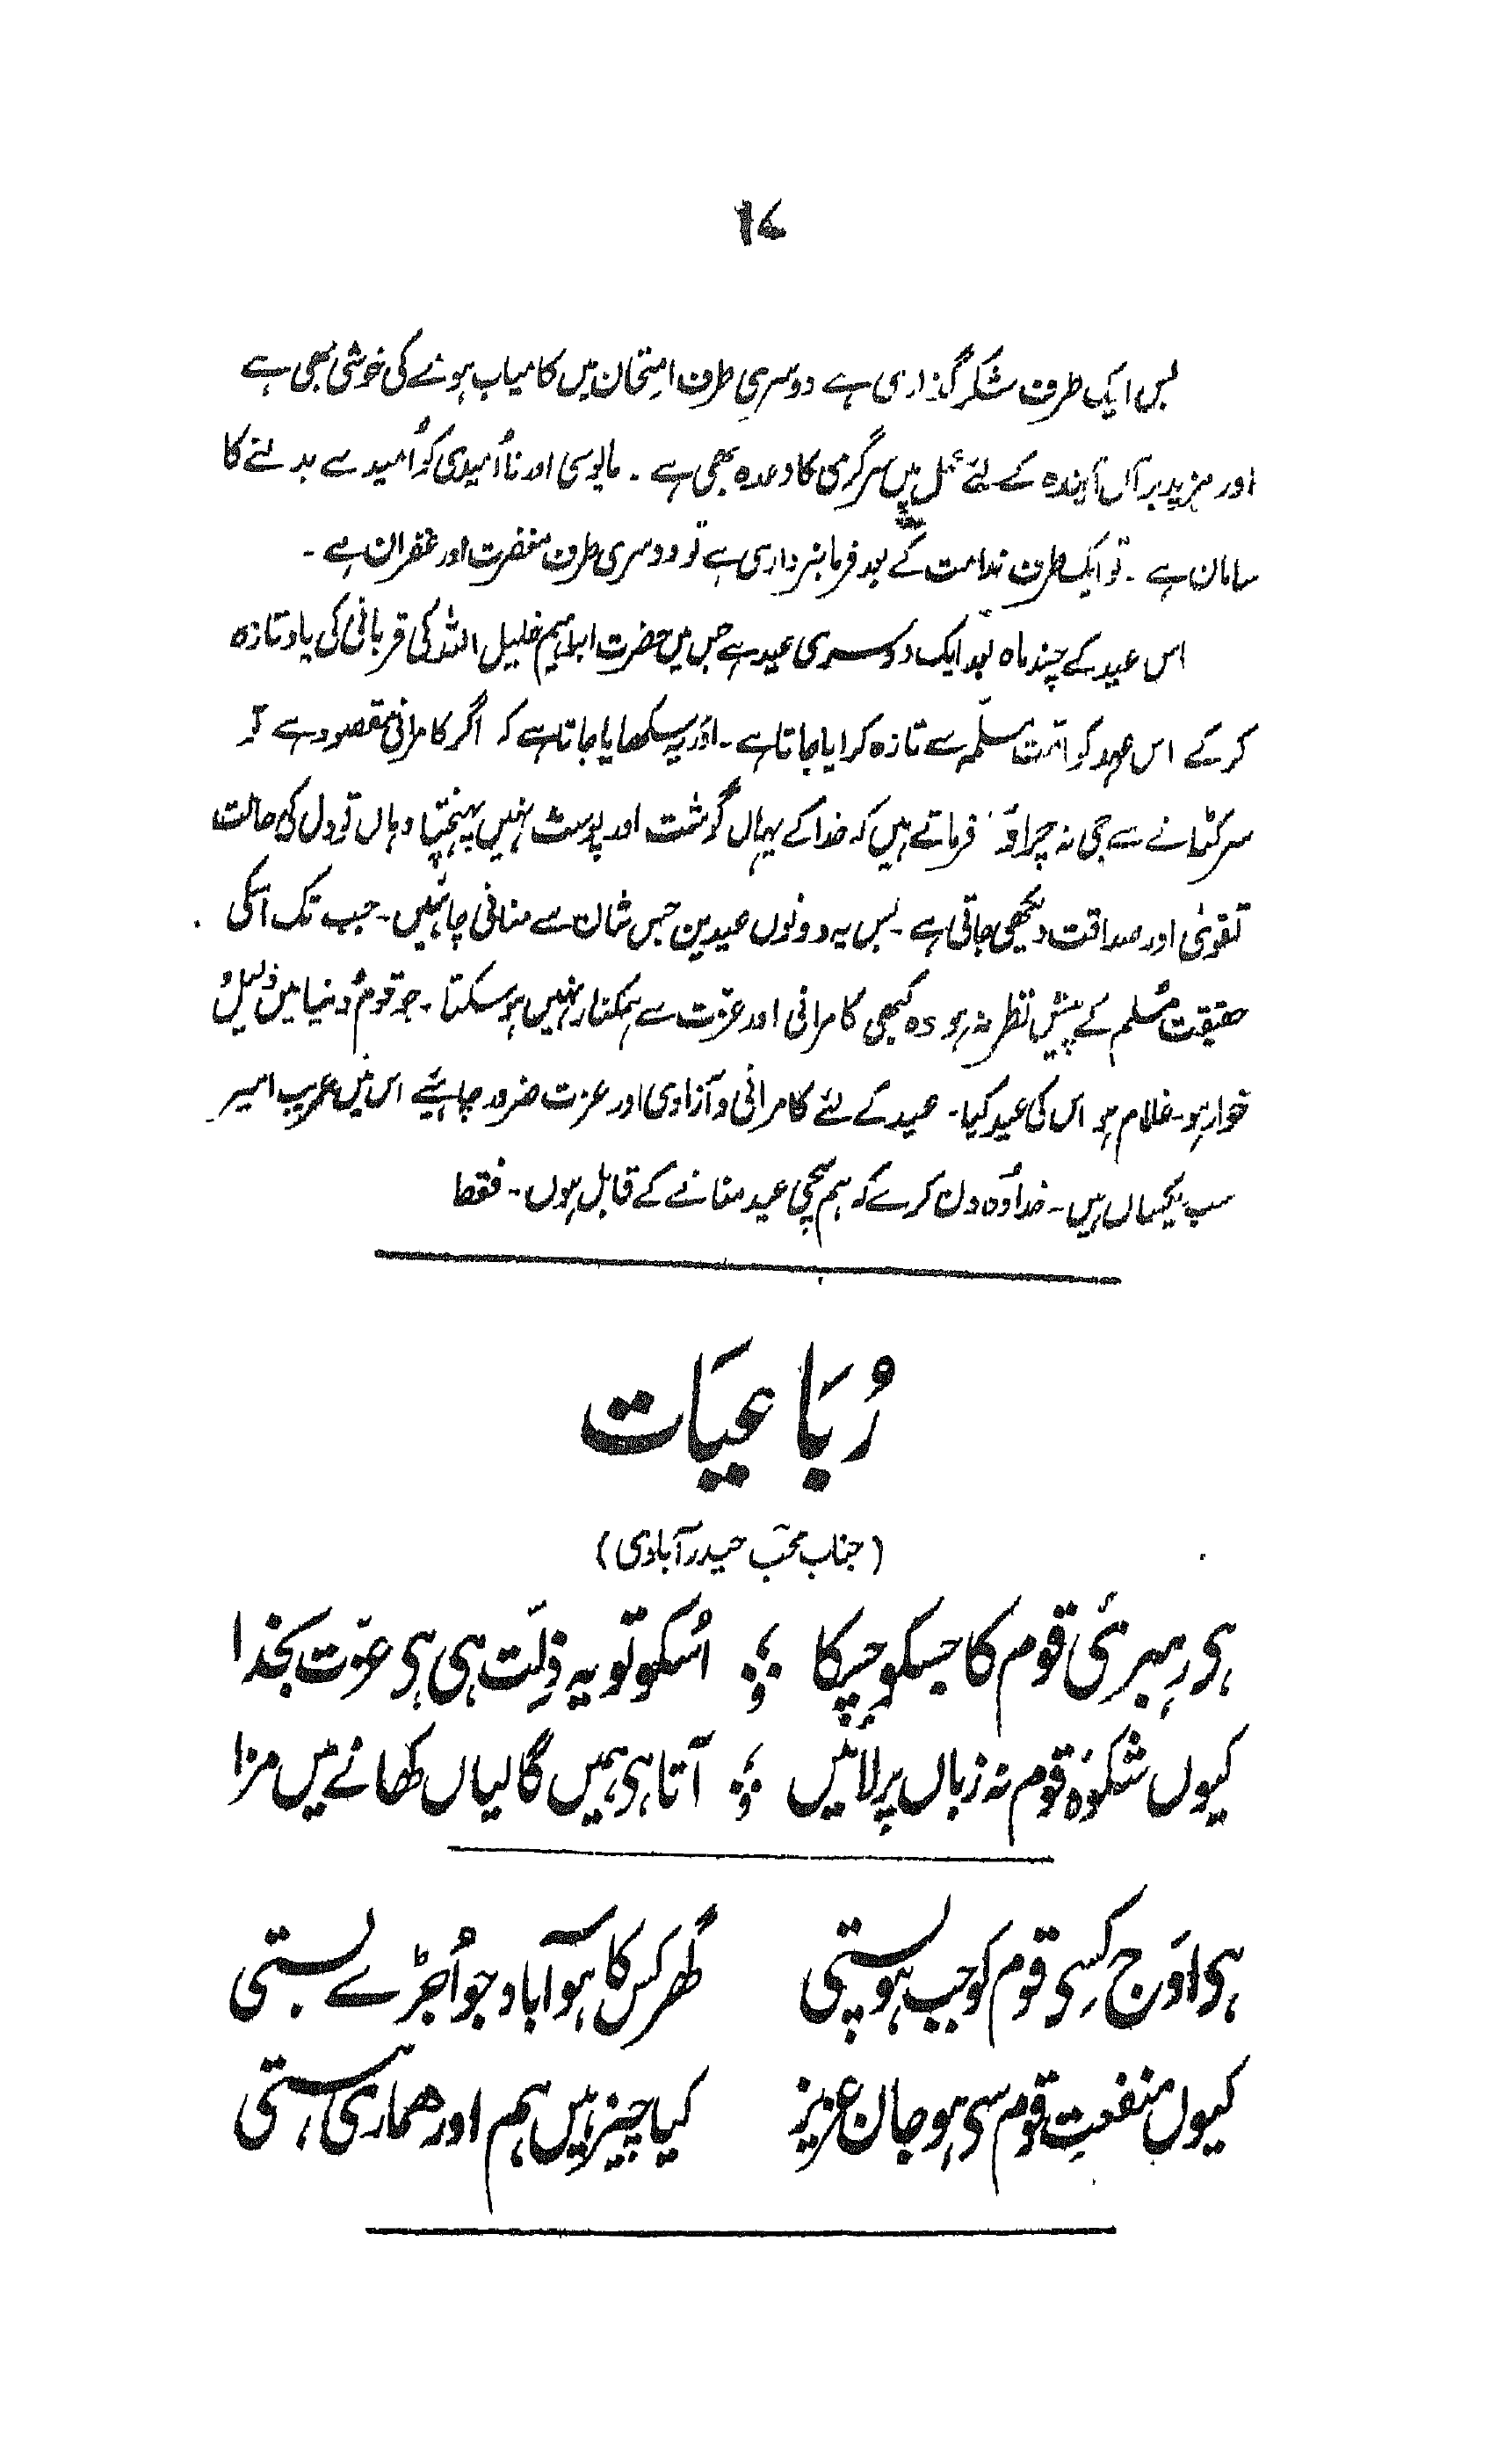 ۱۷
بس ایک طرف شکر گزاری ہے دوسری طرف امتحان میں کامیاب ہونے کی خوشی بھی ہے
اور مزید برآں آیندہ کے لئے عمل میں سرگرمی کا وعدہ بھی ہے ۔ مایوسی اور نااُمیدی کو اُمید سے بدلنے کا
سامان ہے ۔ تو ایک طرف ندامت کے بعد فرمانبرداری ہے تو دوسری طرف مغفرت اور غفران ہے ۔
اس عید کے چند ماہ بعد ایک دوسری عید ہے جس میں حضرت ابراہیم خلیل اللہ کی قربانی کی یاد تازہ
کر کے اس عہد کو امّت مسلّمہ سے تازہ کرایا جاتا ہے ۔ اور یہ سکھایا جاتا ہے کہ اگر کامرانی مقصود ہے تو
سر کٹانے سے جی نہ چراؤ، فرماتے ہیں کہ خدا کے یہاں گوشت اور پوست نہیں پہنچتا وہاں تو دل کی حالت
تقویٰ اور صداقت دیکھی جاتی ہے ۔ بس یہ دونوں عیدین جس شان سے منانی چاہئیں ۔ جب تک اسکی
حقیقت مُسلم کے پیش نظر نہ ہو وہ کبھی کامرانی اور عزّت سے ہمکنار نہیں ہو سکتا ۔ جو قوم دُنیا میں ذلیل و
خوار ہو ۔ غلام ہو اس کی عید کیا ۔ عید کے لئے کامرانی و آزادی اور عزت ضرور چاہئیے اس میں غریب امیر
سب یکساں ہیں ۔ خدا وُہ دن کرے کہ ہم سچی عید منانے کے قابل ہوں ۔ فقط
رُبَاعیَات
(جناب محبّ حیدرآبادی)
ہی رہبریٔ قوم کا جسکو چپکا ؛ اُسکو تو یہ ذلّت ہی ہی عزّت بخدا
کیوں شکوۂ قوم نہ زباں پر لائیں ؛ آتا ہی ہمیں گالیاں کھانے میں مزا
ہی اَوج کسِی قوم کو جب ہو پستی گھر کس کا ہو آباد جو اُجڑے بستی
کیوں منفعتِ قوم سی ہو جان عزیز کیا چیز ہیں ہم اور ہماری ہستی